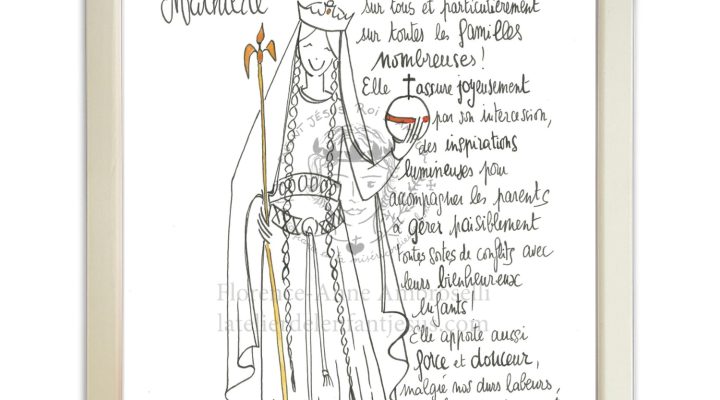 Mathilde
sur tous et particulièrement
sur toutes les familles
nombreuses!
Elle assure joyeusement
par son intercession,
des inspirations
lumineuses pour
accompagner les parents
à gérer paisiblement
toutes sortes de conflits avec
leurs bienheureux
enfants!
Elle apporte aussi
force et douceur,
malgré nos durs labeurs,
Florence-Anne Ambroselli
latelierdelenfantjesus.com